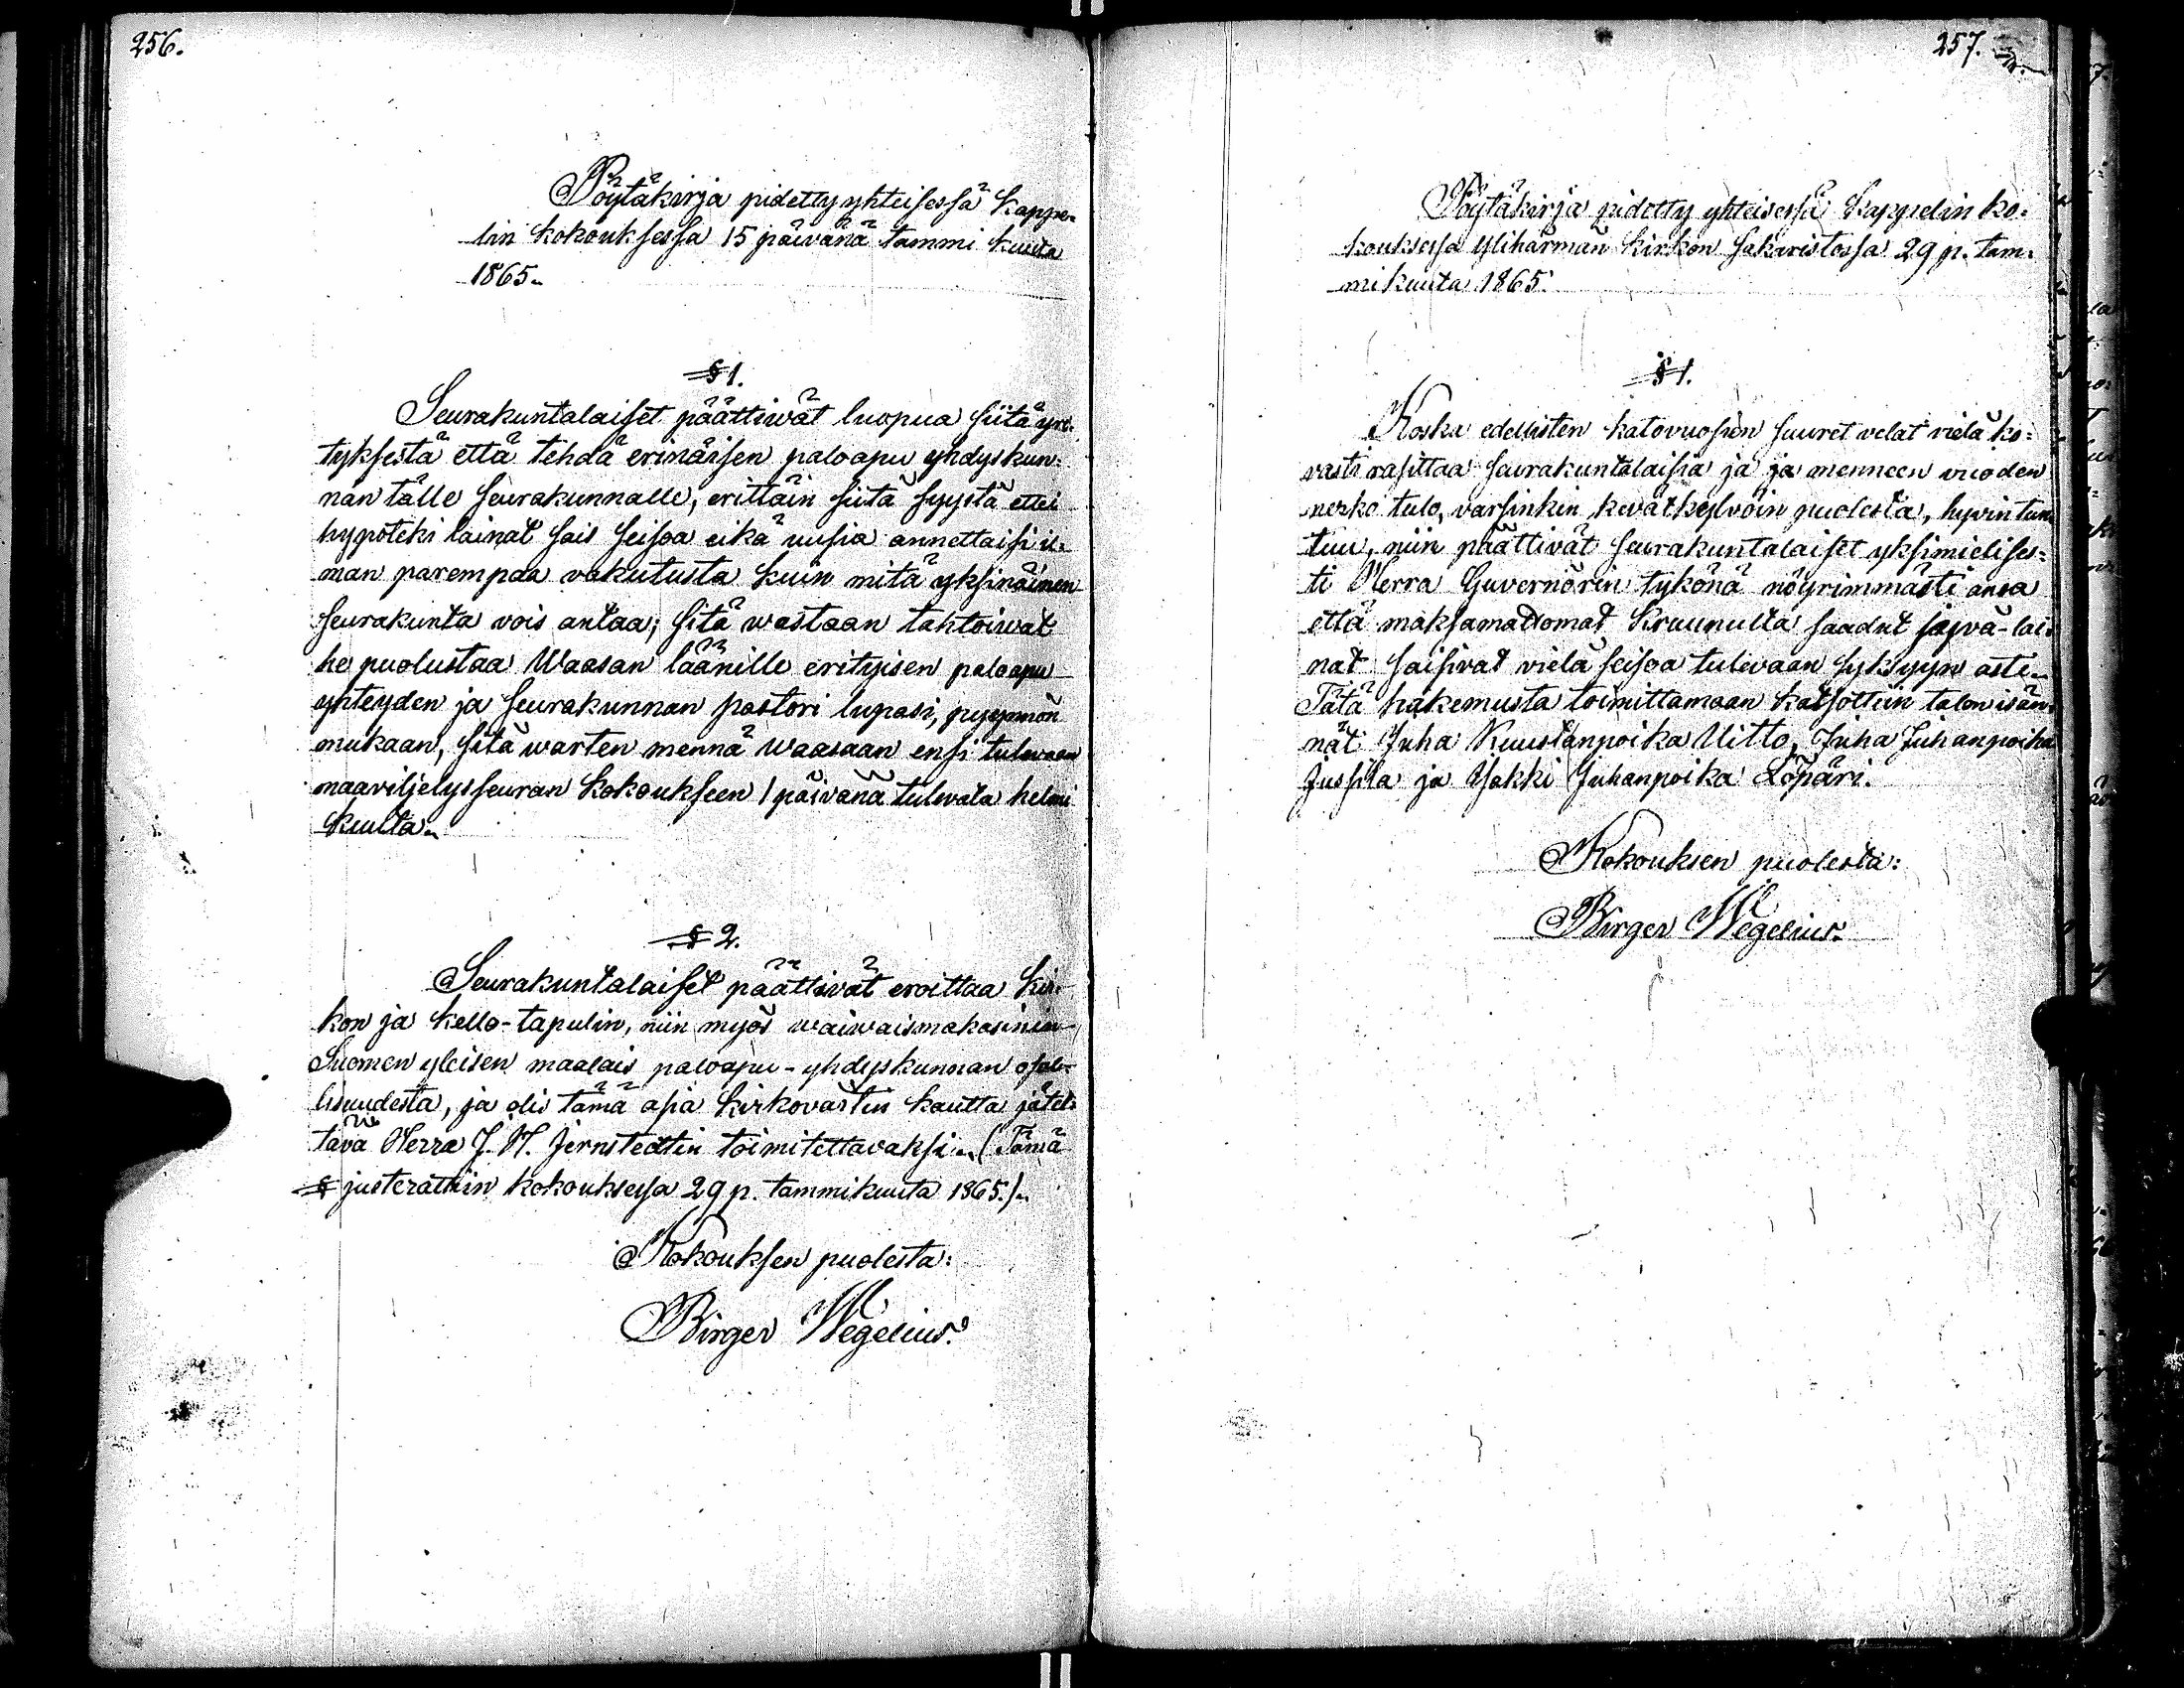 256.
Pöytäkirja pidetty yhteisessä Kappe-
lin kokouksessa 15 päivänä tammi kuuta
1865.
§ 1.
Seurakuntalaiset päättiwät luopua siitä yri-
tyksestä että tehdä erinäisen paloapu yhdyskun-
nan tälle seurakunnalle, erittäin siitä syystä ettei
hypoteki lainat sais seisoa eikä uusia annettaisi il-
man parempaa vakutusta kuin mitä yksinäinen
seurakunta vois antaa; sitä wastaan tahtoiwat
he puolustaa Waasan läänille erityisen paloapu
yhteyden ja seurakunnan pastori lupasi, pyynnön
mukaan, sitä warten mennä Waasaan ensi tulewaan
maaviljelysseuran kokoukseen 1 päivänä tulevata helmi
kuuta.
§ 2.
Seurakuntalaiset päättivät eroittaa kir-
kon ja kello-tapulin, niin myös waiwaismakasinin
Suomen yleisen maalais paloapu-yhdyskunnan osal-
lisuudesta, ja olis tämä asia kirkovästin kautta jätet-
tävä Herra J. N. Jernstedtin toimitettavaksi. (Tämä
§ justerättiin kokouksessa 29 p. tammikuuta 1865.)
Kokouksen puolesta:
Birger Wegelius.
257.
Pöytäkirja pidetty yhteisessä Kappelin ko-
kouksessa Ylihärmän kirkon sakaristossa 29 p. tam-
mikuuta 1865.
§ 1.
Koska edellisten katovuosien suuret velat vielä ko-
vasti rasittaa seurakuntalaisia ja ja menneen vuoden
verko tulo, varsinkin kevätkylvöin puolesta, hyvin tun-
tuu, niin päättivät seurakuntalaiset yksimielises-
ti Herra Guvernörin tykönä nöyrimmästi anoa
että maksamattomat Kruunulta saadut jyvä-lai-
nat saisivat vielä seisoa tulevaan syksyyn asti.
Tätä hakemusta toimittamaan katsottiin talon isän-
nät Juha Kuustanpoika Uitto, Juha Juhanpoika
Jussila ja Jakki Juhanpoika Löpäri.
Kokouksen puolesta:
Birger Wegelius.